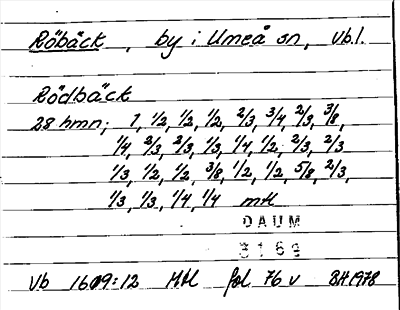 Röbäck, by i Umeå sn, Vb.l.
Rödbäck
28 hmn; 1, 1/2, 1/2, 1/2, 2/3, 3/4, 2/3, 3/8,
1/4, 2/3, 2/3, 1/3, 1/4, 1/2, 2/3, 2/3
1/3, 1/2, 1/2, 3/8, 1/2, 1/2, 5/8, 2/3,
1/3, 1/3, 1/4, 1/4 mtl
DAUM
3169
Vb 1609:12 Mtl fol. 76 v BH 1978